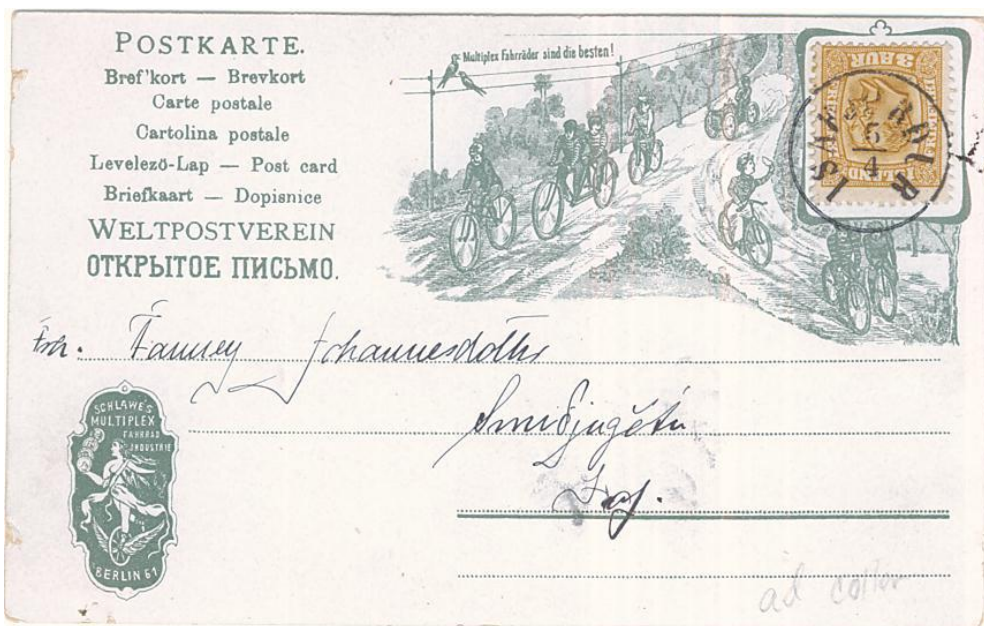 POSTKARTE.
Bref'kort — Brevkort
Carte postale
Cartolina postale
Levelezö-Lap — Post card
Briefkaart — Dopisnice
WELTPOSTVEREIN
ОТКРЫТОЕ ПИСЬМО.
Multiplex Fahrräder sind die besten!
3 AUR
5
4
Fanney Johannesdóttir
Smiðjugötu
SCHLAWE'S
MULTIPLEX
FAHRRAD
INDUSTRIE
BERLIN 61
ad